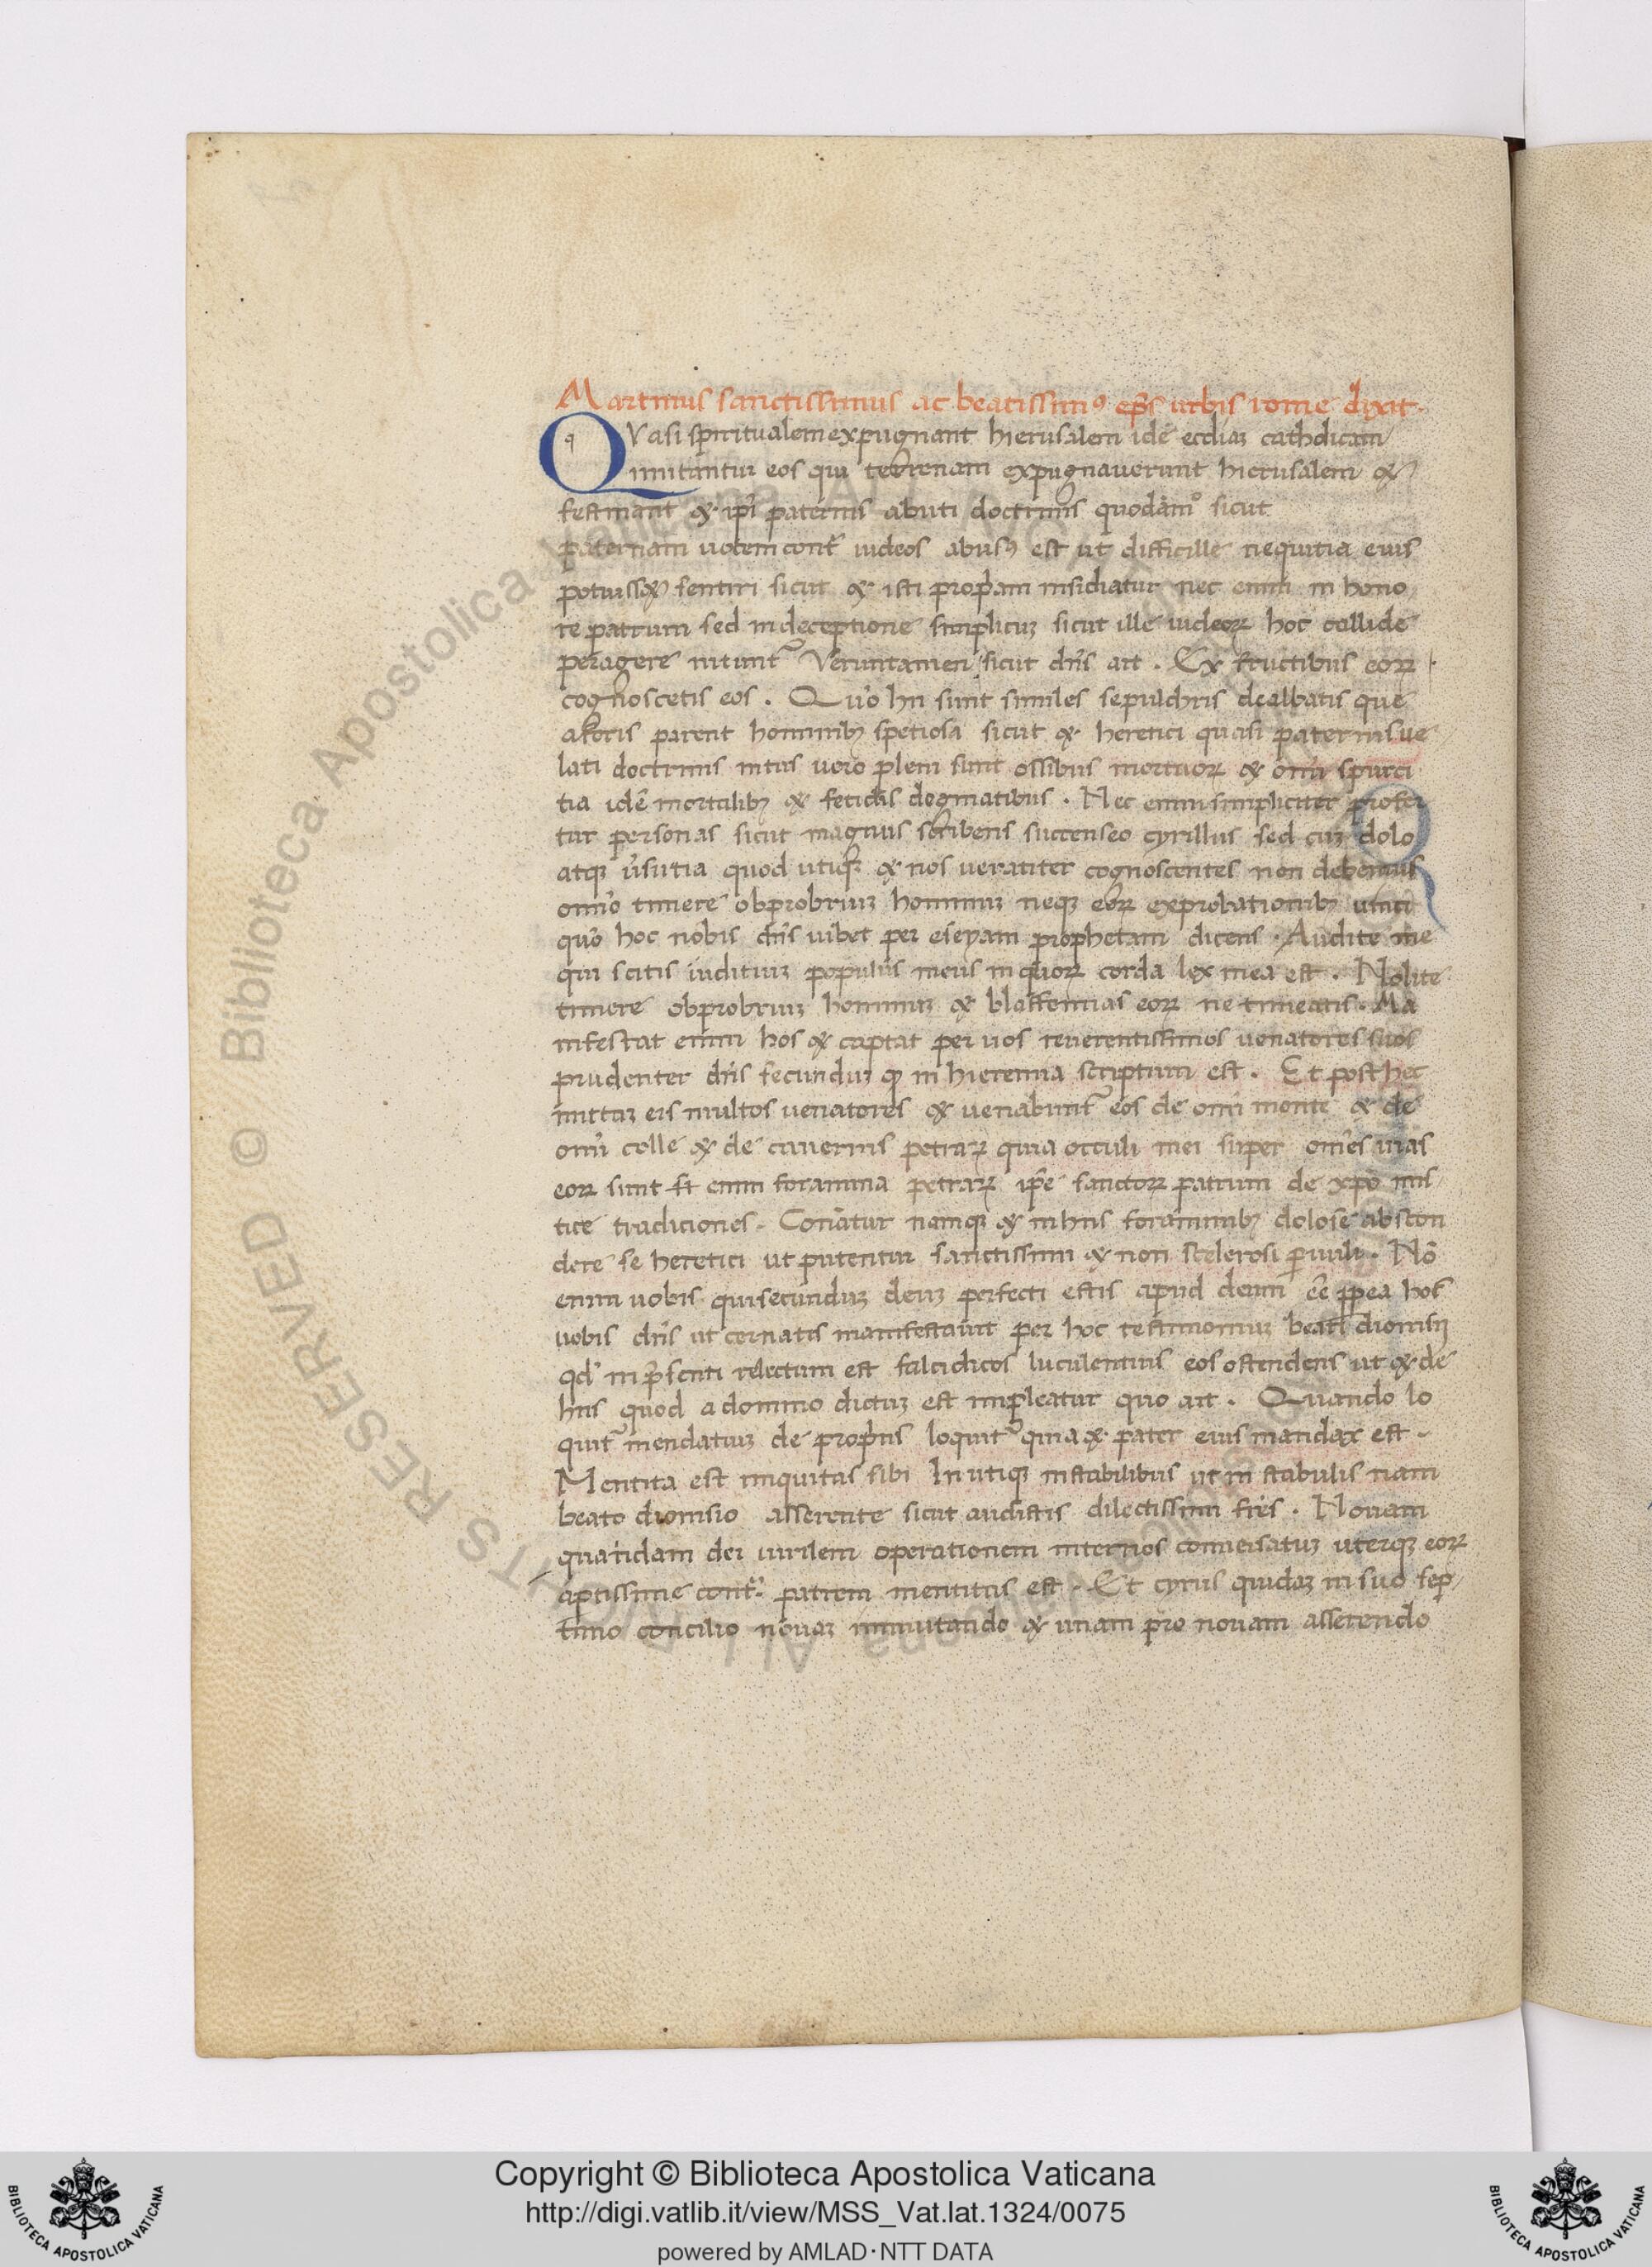 Martinus sanctissimus ac beatissim⁹ ep̄s urbis rome dixit.
QVasi spiritualem expugnant hierusalem idē eccliaꝫ catholicam
imitantur eos qui terrenam expugnaverunt hierusalem &
festinant & ip̄i paternis abuti doctrinis quodāmº sicut
paternam uocem cont̄ iudeos abusꝫ est ut difficille nequitia euis
potuiss& sentiri sicut & isti propham insidiatur nec enim in hono
re patrum sed in deceptione simplicuꝫ sicut ille iudeoꝝ hoc callide
peragere nitunt᷑ Veruntamen sicut dn̄s ait . Ex fructibus eoꝝ
cognoscetis eos . Quō hii sunt similes sepulchris dealbatis que
aforis parent hominibꝫ spetiosa sicut & heretici quasi paternis ue
lati doctrinis intus uero pleni sunt ossibus mortuoꝝ & om̄i spurci
tia idē mortalibꝫ & fetidis dogmatibus . Nec enim simpliciter profer
tur personas sicut magnus scribens succenseo cyrillus sed cuꝫ dolo
atqꝫ u̅sutia quod utiqꝫ & nos ueraciter cognoscentes non debemus
omīo timere obprobriuꝫ hominuꝫ neqꝫ eoꝝ exprobationibꝫ uinci
quō hoc nobis dn̄s uibet per eseyam prophetam dicens . Audite me
qui scitis iuditiuꝫ populus meus in quoꝝ corda lex mea est . Nolite
timere obprobriuꝫ hominuꝫ & blasfemias eoꝝ ne timeatis . Ma
nifestat enim hos & captat per uos reuerentissimos uenatores suos
prudenter dn̄s secunduꝫ qđ in hieremia scriptum est . Et post hec
mittaꝫ eis multos uenatores & uenabunt᷑ eos de om̄i monte & de
om̄i colle & de cauernis petraꝝ quia occuli mei super om̄es uias
eoꝝ sunt st enim foramina petraꝝ ip̄e sanctoꝝ patrum de xp̄o mis
tice tradiciones . Conātur namqꝫ & in hiis foraminibꝫ dolose abscon
dere se heretici ut putentur sanctissimi & non scelerosi puuli . Nō
enim uobis qui secunduꝫ deuꝫ perfecti estis apud deum ēē ꝓpea hos
uobis dn̄s ut cernatis manifestauit per hoc testimoniuꝫ beati dionisij
qđ in p̄senti relectum est falcidicos luculentius eos ostendens ut & de
hiis quod a domino dictuꝫ est impleatur quo ait . Quando lo
quit᷑ mendatiuꝫ de propriis loquit᷑ quia & pater eius mandax est .
Mentita est iniquitas sibi In utiqꝫ instabilibus ut in stabulis nam
beato dionisio asserente sicut audistis dilectissimi fr̄es . Nouam
quandam dei uirilem operationem inter nos conuersatuꝫ uterqꝫ eoꝝ
aptissime contᷓ. patrem mentitus est . Et cyrus quidaꝫ in suo sep
timo concilio nouaꝫ immutando & unam pro nouam asserendo
Copyright © Biblioteca Apostolica Vaticana
http://digi.vatlib.it/view/MSS_Vat.lat.1324/0075
powered by AMLAD·NTT DATA